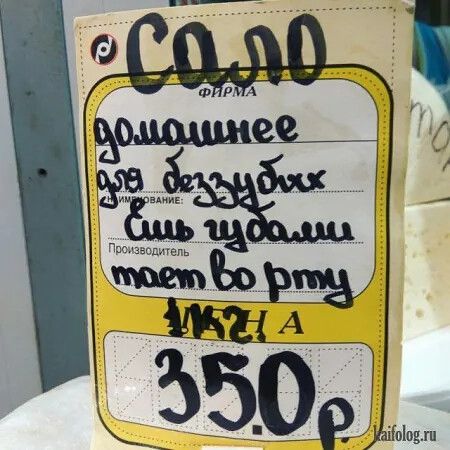 Сало
ФИРМА
домашнее
для беззубых
НАИМЕНОВАНИЕ:
Ешь губами
Производитель
тает во рту
ЦЕНА
1 кг.
350р
kaifolog.ru